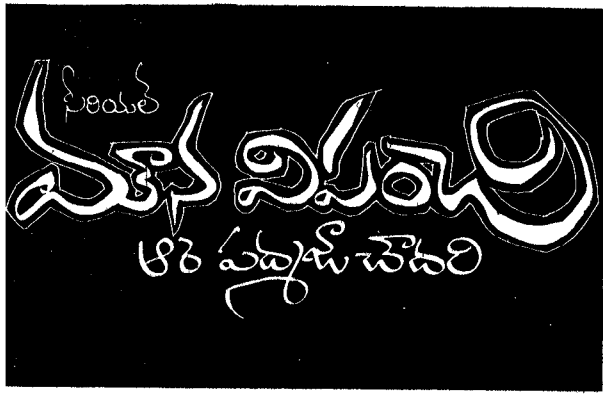 సీరియల్
మౌన విపంచి
ఆర్ పద్మజా చౌదరి